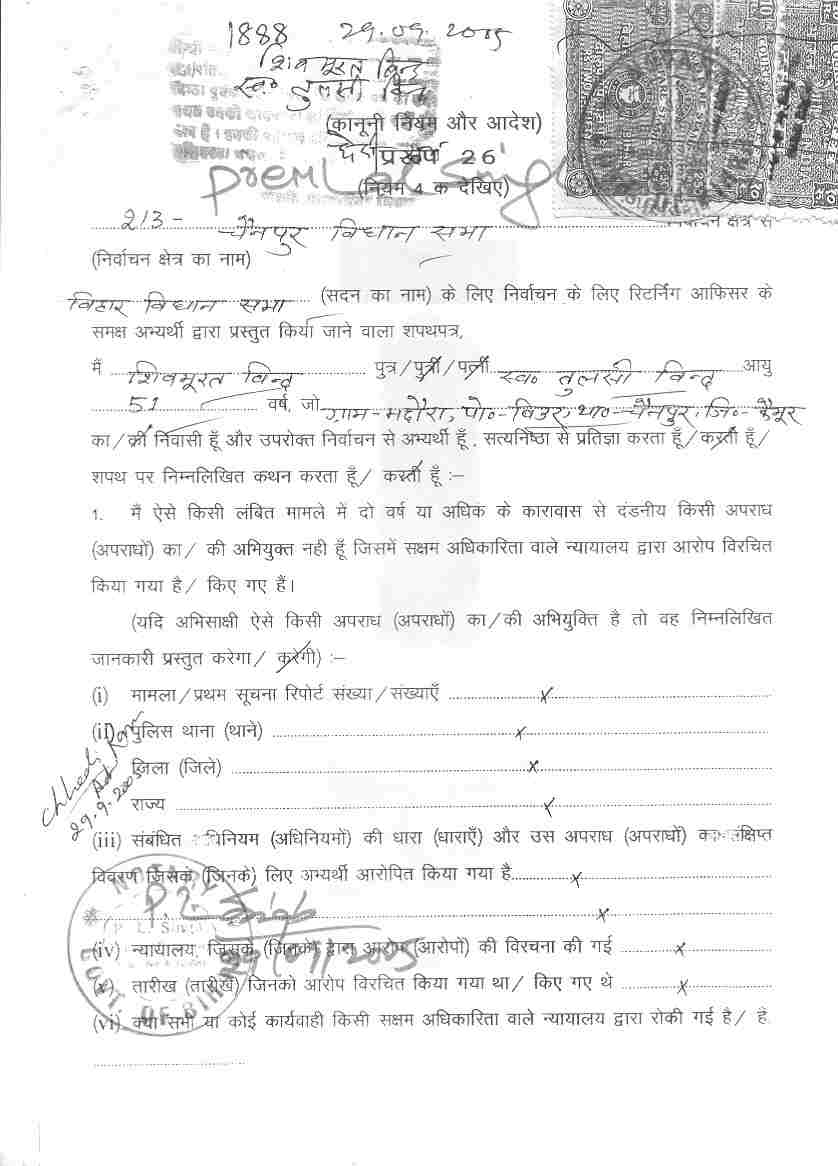 1888 29.09.2005
शिव मूरत विन्द
स्व० तुलसी विन्द
(कानूनी नियम और आदेश)
प्ररूप 26
Premlal Singh
(नियम 4 क देखिए)
213- चैनपुर विधान सभा
निर्वाचन क्षेत्र से
(निर्वाचन क्षेत्र का नाम)
विहार विधान सभा (सदन का नाम) के लिए निर्वाचन के लिए रिटर्निंग आफिसर के
समक्ष अभ्यर्थी द्वारा प्रस्तुत किया जाने वाला शपथपत्र,
मैं शिवमूरत विन्द पुत्र/पुत्री/पत्नी स्व० तुलसी विन्द आयु
51 वर्ष, जो ग्राम-मदौरा, पो०-विउर, था०-चैनपुर, जि०-कैमूर
का/की निवासी हूँ और उपरोक्त निर्वाचन से अभ्यर्थी हूँ, सत्यनिष्ठा से प्रतिज्ञा करता हूँ/करती हूँ/
शपथ पर निम्नलिखित कथन करता हूँ/ करती हूँ :–
1. मैं ऐसे किसी लंबित मामले में दो वर्ष या अधिक के कारावास से दंडनीय किसी अपराध
(अपराधों) का/ की अभियुक्त नही हूँ जिसमें सक्षम अधिकारिता वाले न्यायालय द्वारा आरोप विरचित
किया गया है/ किए गए हैं।
(यदि अभिसाक्षी ऐसे किसी अपराध (अपराधों) का/की अभियुक्ति है तो वह निम्नलिखित
जानकारी प्रस्तुत करेगा/ करेगी) :–
(i) मामला/प्रथम सूचना रिपोर्ट संख्या/संख्याएँ x
(ii) पुलिस थाना (थाने) x
जिला (जिले) x
राज्य x
Chhedi Ram
Ad
29.9.2005
(iii) संबंधित अधिनियम (अधिनियमों) की धारा (धाराएँ) और उस अपराध (अपराधों) का संक्षिप्त
विवरण जिसके (जिनके) लिए अभ्यर्थी आरोपित किया गया है x
x
NOTARY
GOVT. OF BIHAR
(iv) न्यायालय, जिसके (जिनको) द्वारा आरोप (आरोपों) की विरचना की गई x
(v) तारीख (तारीखें) जिनको आरोप विरचित किया गया था/ किए गए थे x
(vi) क्या सभी या कोई कार्यवाही किसी सक्षम अधिकारिता वाले न्यायालय द्वारा रोकी गई है/ हैं.